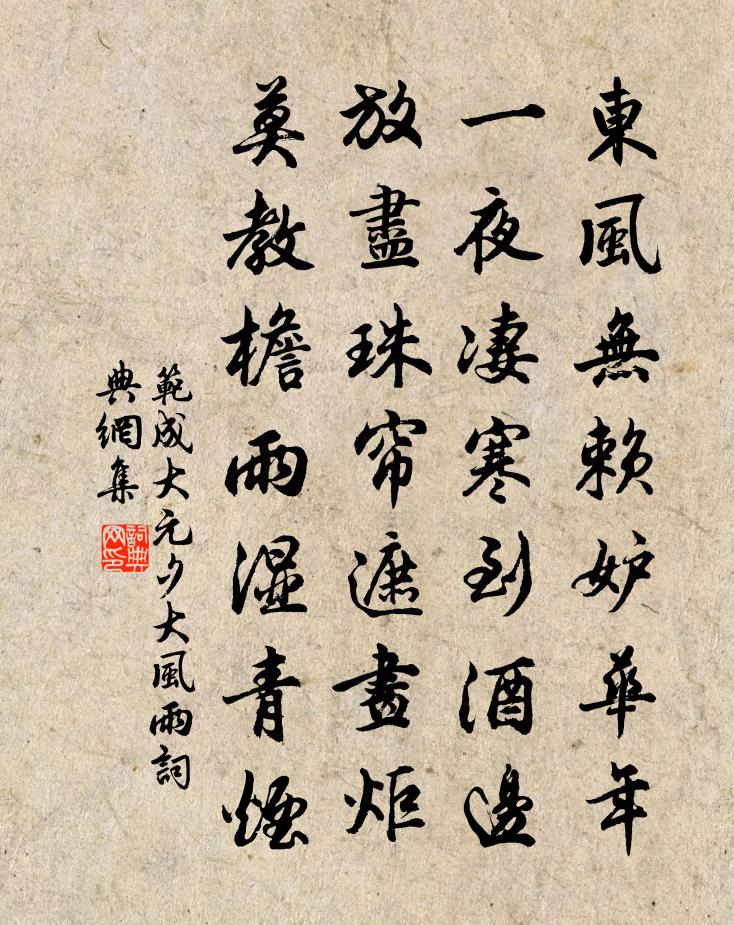 東風無賴妒華年
一夜淒寒到酒邊
放盡珠帘遮畫炬
莫教檐雨濕青煙
範成大元夕大風雨詞
典網集
詞典網印